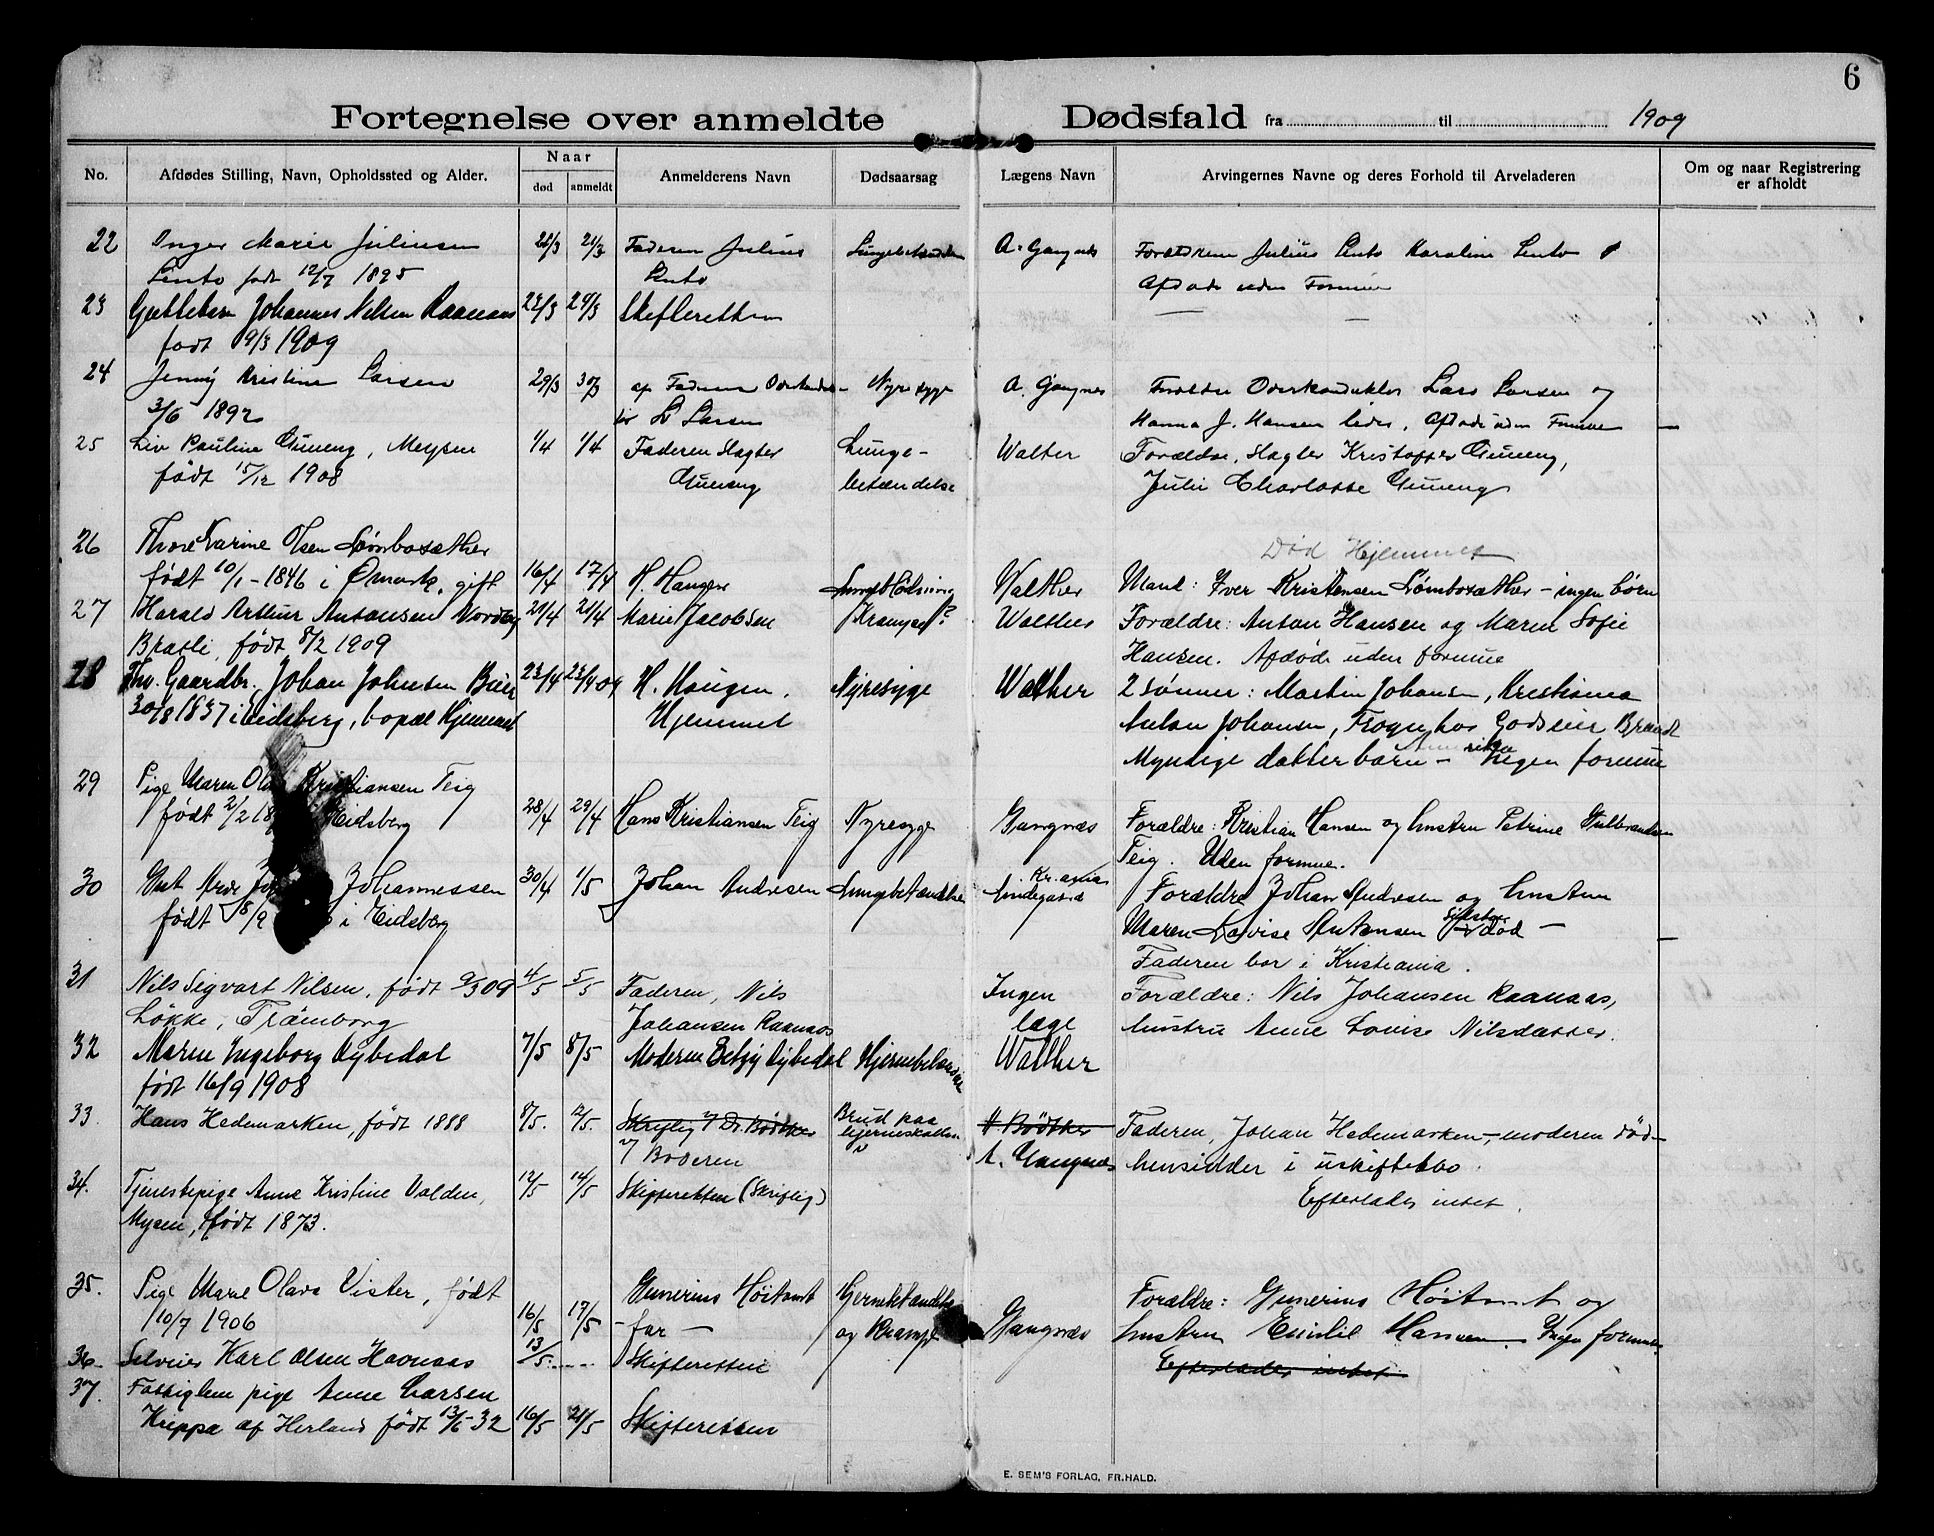 6
Fortegnelse over anmeldte Dødsfald fra til 1909
No. Afdødes Stilling, Navn, Opholdssted og Alder. Naar død anmeldt Anmelderens Navn Dødsaarsag Lægens Navn Arvingernes Navne og deres Forhold til Arveladeren Om og naar Registrering er afholdt
22 Inger Marie Juliusen Faderen Julius A. Gangnæs Forældrene Julius Karoline
født 12/7 1895 Afdøde uden Formue
23 Johannes Nilsen Raanaas 23/3 Skifteretten
født 9/3 1909
24 Jenny Kristine Larsen 29/3 30/3 af Faderen Nyresyge A. Gangnes Forældre Overkonduktør Lars Larsen og
3/6 1892 L. Larsen Hanna J. Hansen lever, Afdøde uden Formue
25 Liv Pauline Mysen 1/4 1/4 Faderen Slagter Lunge- Walter Forældre, Slagter Kristoffer
født 15/12 1908 betændelse Julie Charlotte
26 Thore Karine Olsen Lømboxæther Død Hjemmet
født 10/1 - 1846 i Ømark, gift 16/4 17/4 H. Haugen Walther Mand: Iver Kristensen Lømboxæther - ingen børn
27 Harald Arthur Antonsen Nordby 21/4 Marie Jacobsen Krampe? Walther Forældre: Anton Hansen og Maren Sofie
født 8/2 1909 Hansen. Afdøde uden formue
28 Fhv. Gaardbr. Johan Johnsen 23/4 23/4 09 H. Haugen. Nyresyge Walther 2 sønner: Martin Johansen, Kristiania
30/8 1837 i Eidsberg, bopæl Hjemmet Hjemmet Anton Johansen, Frogn hos Godseier Brandt
Myndige datterbarn - Amerika Ingen formue
29 Pige Maren Kristiansen Teig
født 2/2 Eidsberg 28/4 29/4 Hans Kristiansen Teig Nyresyge Gangnæs Forældre: Kristian Hansen og hustru Petrine Gulbrandsen
Teig. Uden formue.
30 Johannessen 30/4 1/5 Johan Andresen Lungebetændelse Kr.ania Forældre Johan Andresen og hustru
født i Eidsberg Lindegaard Maren Lovise Antonsen død -
Faderen bor i Kristiania.
31 Nils Sigvart Nilsen, født 9/3 09 4/5 5/5 Faderen, Nils Ingen Forældre: Nils Johansen Raanaas,
Løkke, Trømborg Johansen Raanaas læge hustru Anne Lovise Nilsdatter.
32 Maren Ingeborg Dybedal 7/5 8/5 Moderen Betzy Dybedal Hjernebetændelse Walther
født 16/9 1908
33. Hans Hedemarken, født 1888 8/5. 12/5. Skriftlig v/ Dr. Bødtker Brud paa H Bødtker Faderen, Johan Hedemarken, - moderen død -
v/ Broderen hjerneskallen A. Gangnæs hensidder i uskiftet bo.
34. Tjenestepige Anne Kristine Valden, 12/5 14/5 Skifteretten (Skriftlig) Efterlader intet.
Mysen, født 1873.
35. Pige Marie Olava Vister, født Gunerius Høitomt Hjernebetændelse Forældre: Gunerius Høitomt og
10/7 1906 16/5 17/5 - far - og Krampe Gangnæs hustru Emilie Hansen. Ingen formue.
36. Karl Olsen Haanaas 13/5 Skifteretten Efterlader intet
37. Fattiglem pige Anne Larsen
Kreppa af Herland født 13/6 32 16/5 21/5 Skifteretten
E. SEM'S FORLAG, FR.HALD.